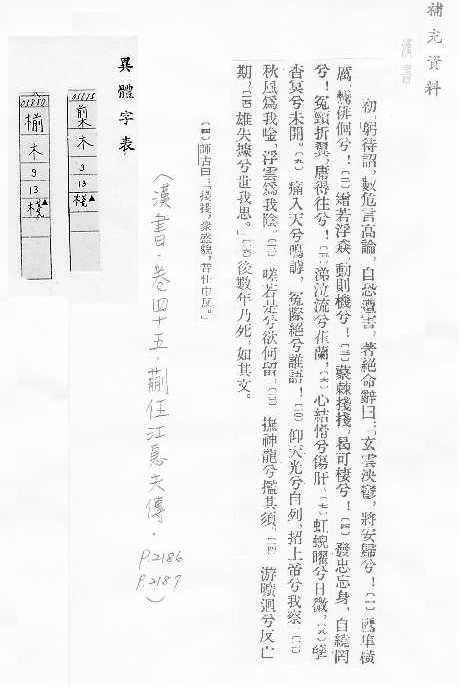 補充資料
漢書
初，躬待詔，數危言高論，自恐遭害，著絕命辭曰：「玄雲泱鬱，將安歸兮！〔一〕鷹隼橫
厲，鸞俳佪兮！〔二〕矰若浮猋，動則機兮！〔三〕藂棘棧棧，曷可棲兮！〔四〕發忠忘身，自繞罔
兮！冤頸折翼，庸得往兮！〔五〕涕泣流兮萑蘭，〔六〕心結愲兮傷肝。〔七〕虹蜺曜兮日微，〔八〕孽
杳冥兮未開。〔九〕痛入天兮鳴謼，冤際絕兮誰語！〔一〇〕仰天光兮自列，招上帝兮我察。〔一一〕
秋風為我唫，浮雲為我陰。〔一二〕嗟若是兮欲何留，〔一三〕撫神龍兮攬其須。〔一四〕游曠迥兮反亡
期，〔一五〕雄失據兮世我思。」〔一六〕後數年乃死，如其文。
〔四〕師古曰：「棧棧，衆盛貌，音仕巾反。」
〈漢書．卷四十五．蒯伍江息夫傳．
P.2186
P.2187〉
異體字表
木
9
13
棧▲
木
9
13
棧▲